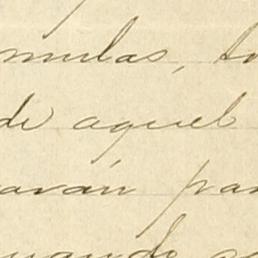 mulas,
de aquel
arán par
uando